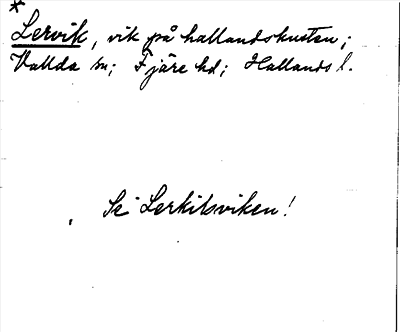 *
Lervik, vik på hallandskusten;
Vallda sn; Fjäre hd; Hallands l.
Se Lerkilsviken!